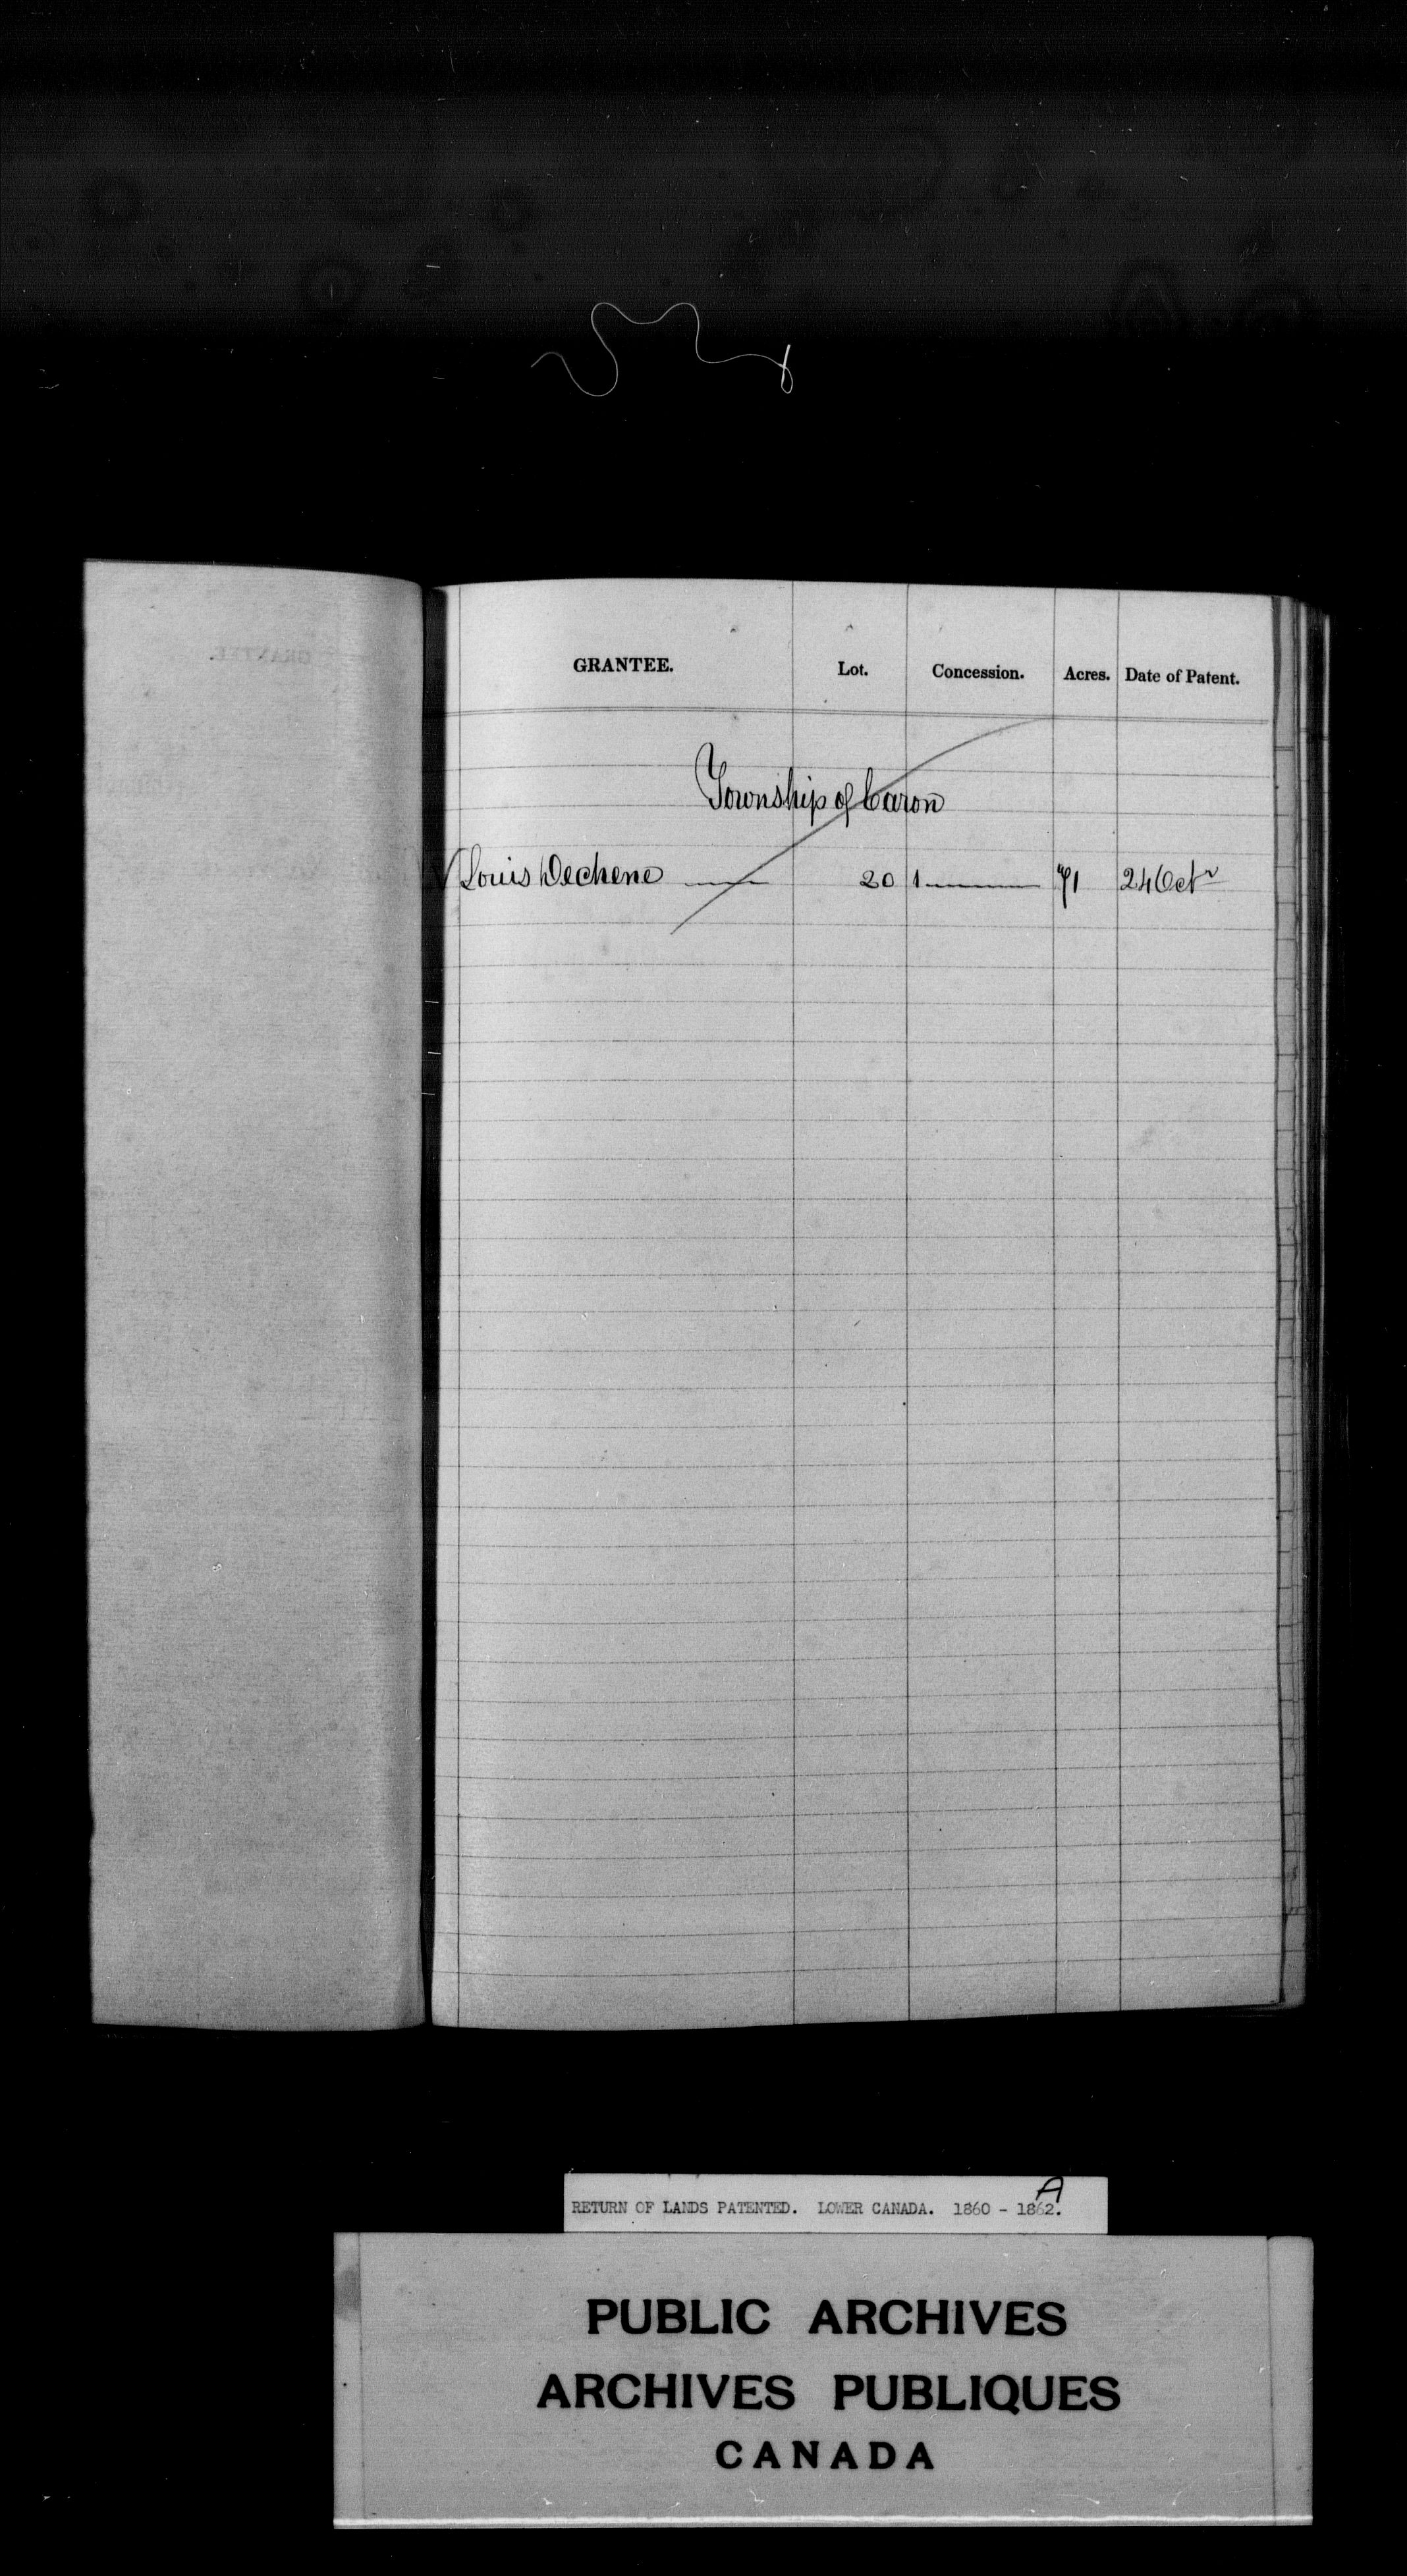 GRANTEE. Lot. Concession. Acres. Date of Patent.
Township of Caron
Louis Dechene 20 1 71 24 Octr
A
RETURN OF LANDS PATENTED. LOWER CANADA. 1860 - 1862.
PUBLIC ARCHIVES
ARCHIVES PUBLIQUES
CANADA